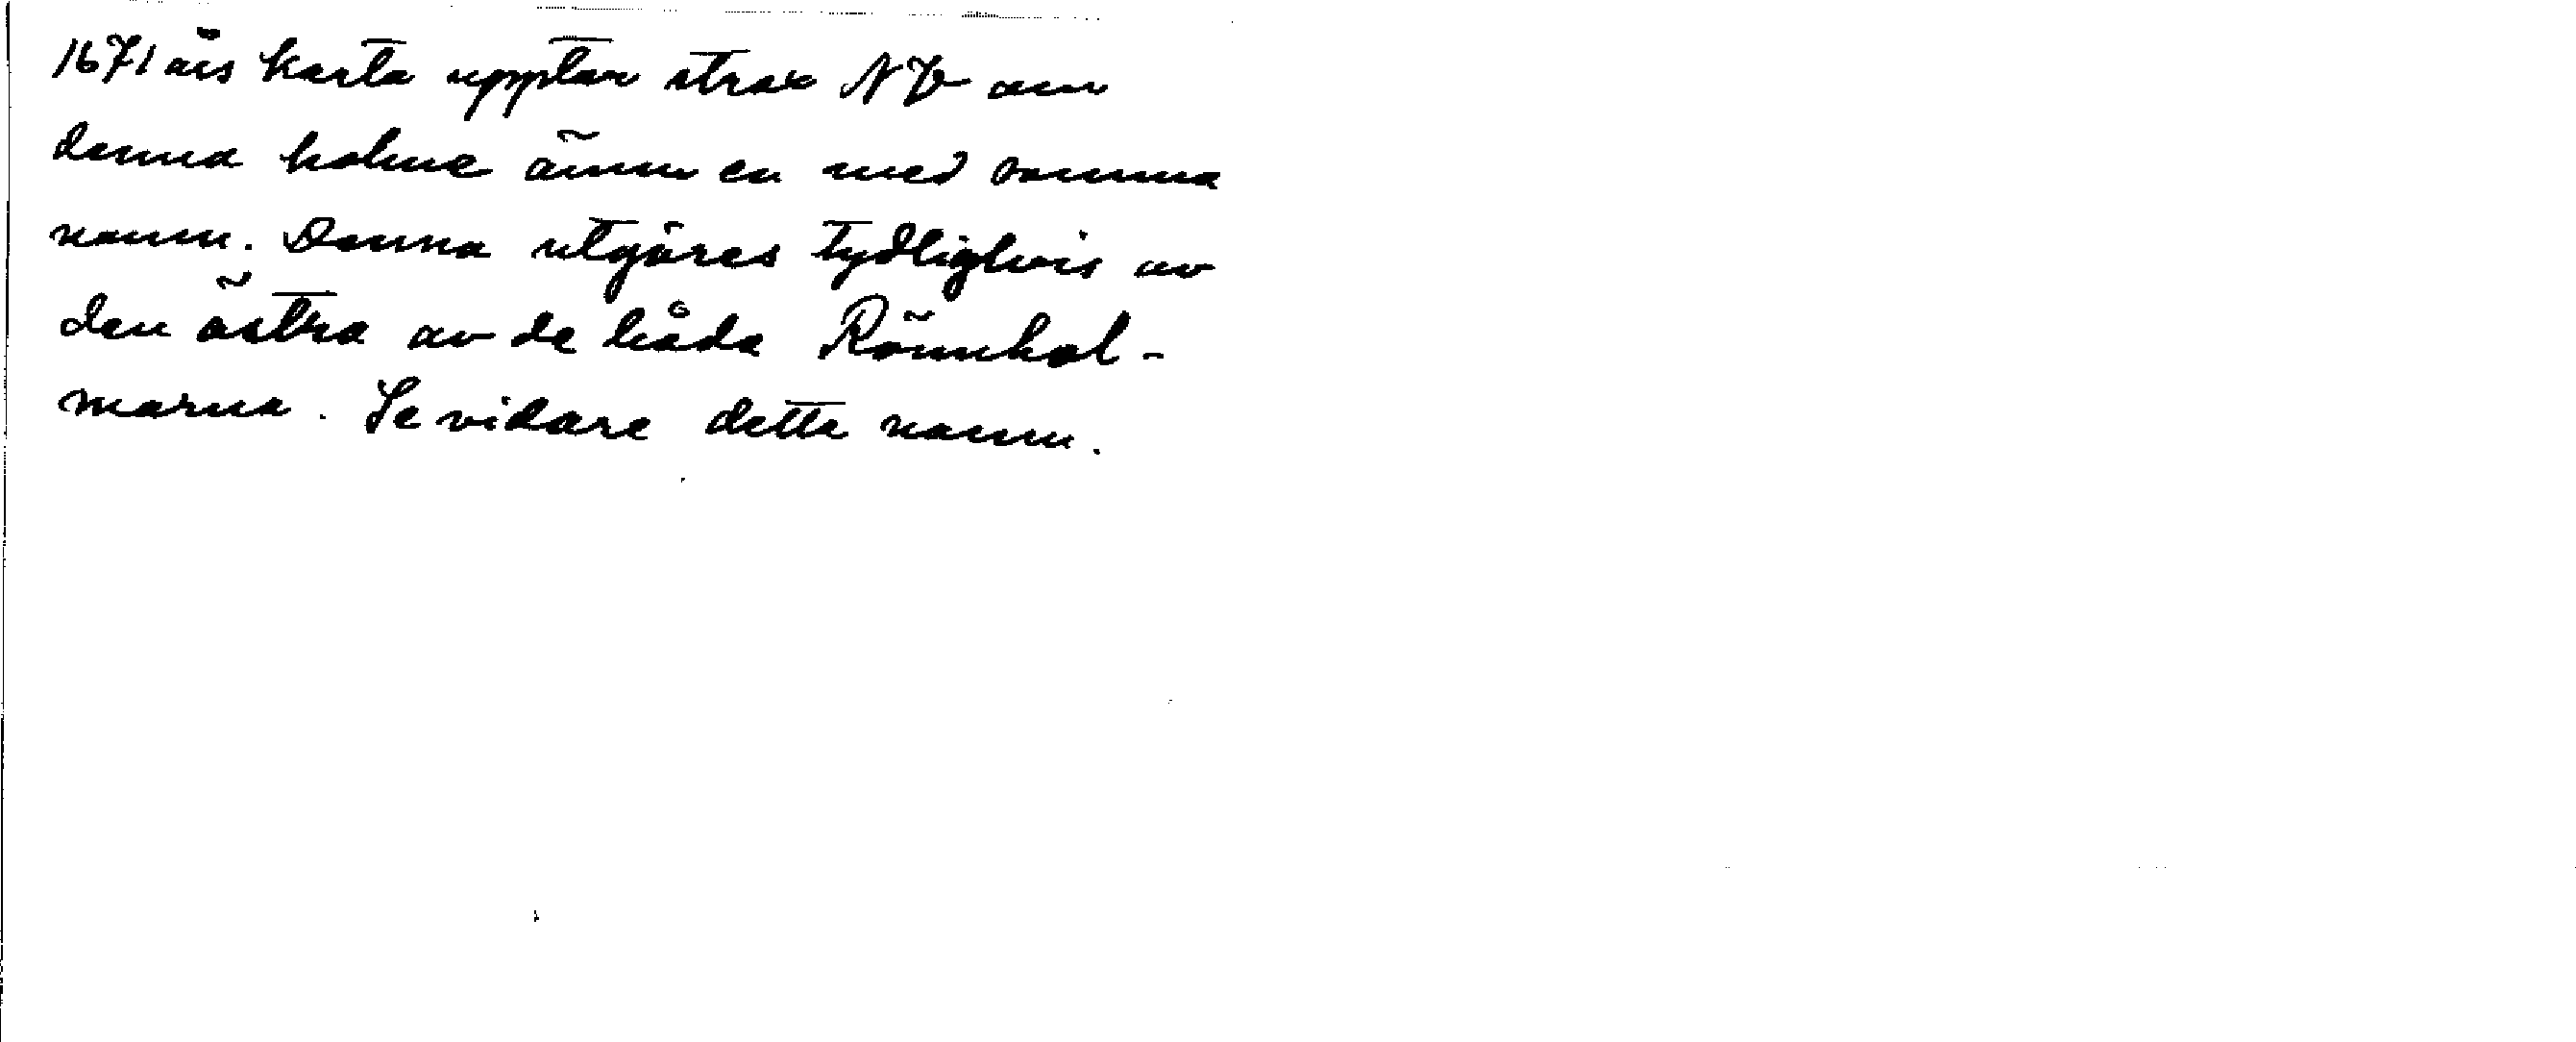 1671 års karta upptar strax NV om
denna holme ännu en med samma
namn. Denna utgöres tydligtvis av
den östra av de båda Rönnhol-
marna. Se vidare detta namn.